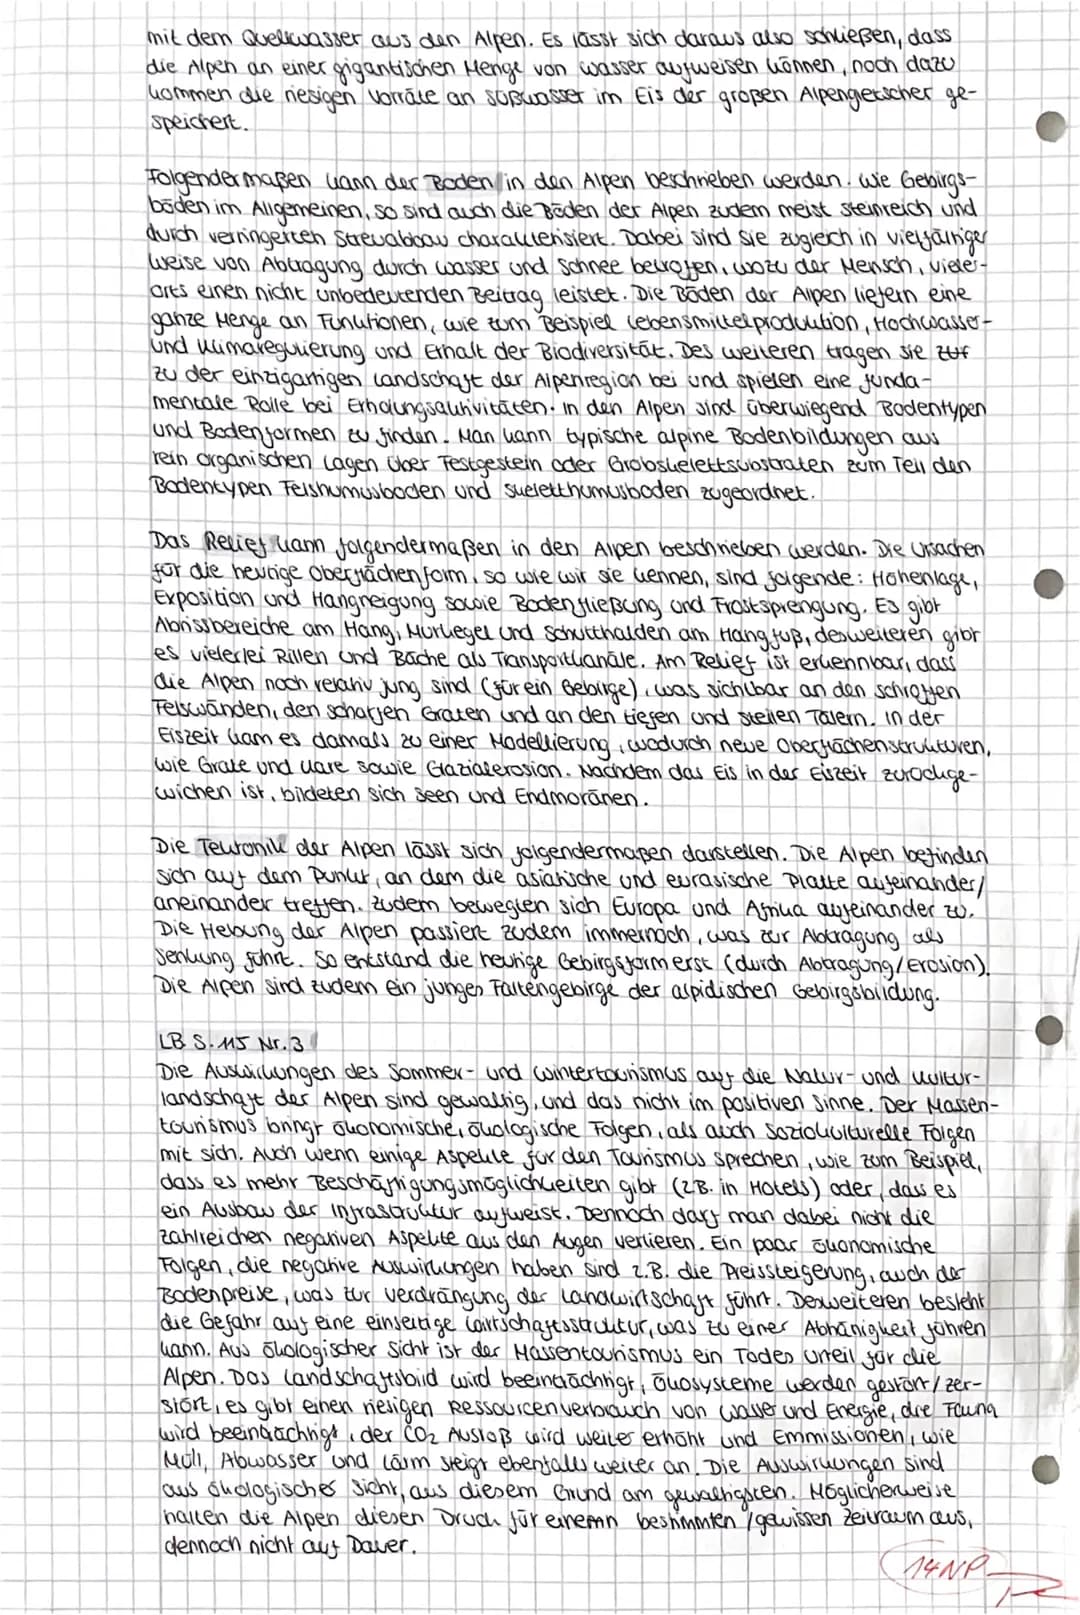 mit dem Quellwasser aus den Alpen. Es lässt sich daraus also schließen, dass
die Alpen an einer gigantischen Menge von Wasser aufweisen können, noch dazu
kommen die riesigen Vorräte an Süßwasser im Eis der großen Alpengletscher ge-
speichert.
Folgendermaßen kann der Boden in den Alpen beschrieben werden. Wie Gebirgs-
böden im Allgemeinen, so sind auch die Böden der Alpen zudem meist steinreich und
durch verringerten Streuabbau charakterisiert. Dabei sind sie zugleich in vielfältiger
Weise von Abtragung durch Wasser und Schnee betroffen, wozu der Mensch, vieler-
orts einen nicht unbedeutenden Beitrag leistet. Die Böden der Alpen liefern eine
ganze Menge an Funktionen, wie zum Beispiel Lebensmittelproduktion, Hochwasser-
und Klimaregulierung und Erhalt der Biodiversität. Des weiteren tragen sie
zu der einzigartigen Landschaft der Alpenregion bei und spielen eine funda-
mentale Rolle bei Erholungsaktivitäten. In den Alpen sind überwiegend Bodentypen
und Bodenformen zu finden. Man kann typische alpine Bodenbildungen aus
rein organischen Lagen über Festgestein oder Grobskelettsubstraten zum Teil den
Bodentypen Felshumusboden und Skeletthumusboden zugeordnet.
Das Relief kann folgendermaßen in den Alpen beschrieben werden. Die Ursachen
für die heutige Oberflächenform, so wie wir sie kennen, sind folgende: Höhenlage,
Exposition und Hangneigung sowie Bodenfließung und Frostsprengung. Es gibt
Abrissbereiche am Hang, Murkegel und Schutthalden am Hangfuß, desweiteren gibt
es vielerlei Rillen und Bäche als Transportkanäle. Am Relief ist erkennbar, dass
die Alpen noch relativ jung sind (für ein Gebirge), was sichtbar an den schroffen
Felswänden, den scharfen Graten und an den tiefen und steilen Tälern. In der
Eiszeit kam es damals zu einer Modellierung, wodurch neue Oberflächenstrukturen,
wie Grate und Kare sowie Glazialerosion. Nachdem das Eis in der Eiszeit zurückge-
wichen ist, bildeten sich Seen und Endmoränen.
Die Tektonik der Alpen lässt sich folgendermaßen darstellen. Die Alpen befinden
sich auf dem Punkt, an dem die asiatische und eurasische Platte aufeinander/
aneinander treffen. Zudem bewegten sich Europa und Afrika aufeinander zu.
Die Hebung der Alpen passiert zudem immernoch, was zur Abtragung als
Senkung führt. So entstand die heutige Gebirgsform erst (durch Abtragung/Erosion).
Die Alpen sind zudem ein junges Faltengebirge der alpidischen Gebirgsbildung.
LB S. 115 Nr. 3
Die Auswirkungen des Sommer- und Wintertourismus auf die Natur- und Kultur-
landschaft der Alpen sind gewaltig, und das nicht im positiven Sinne. Der Massen-
tourismus bringt ökonomische, ökologische Folgen, als auch soziokulturelle Folgen
mit sich. Auch wenn einige Aspekte für den Tourismus sprechen, wie zum Beispiel,
dass es mehr Beschäftigungsmöglichkeiten gibt (z.B. in Hotels) oder, dass es
ein Ausbau der Infrastruktur aufweist. Dennoch darf man dabei nicht die
zahlreichen negativen Aspekte aus den Augen verlieren. Ein paar ökonomische
Folgen, die negative Auswirkungen haben sind z.B. die Preissteigerung, auch der
Bodenpreise, was zur Verdrängung der Landwirtschaft führt. Desweiteren besteht
die Gefahr auf eine einseitige Wirtschaftsstruktur, was zu einer Abhänigkeit führen
kann. Aus ökologischer Sicht ist der Massentourismus ein Todes Urteil für die
Alpen. Das Landschaftsbild wird beeinträchtigt, Ökosysteme werden gestört/zer-
stört, es gibt einen riesigen Ressourcenverbrauch von Wasser und Energie, die Fauna
wird beeinträchtigt, der CO2 Austoß wird weiter erhöht und Emmissionen, wie
Müll, Abwasser und Lärm steigt ebenfalls weiter an. Die Auswirkungen sind
aus ökologischer Sicht, aus diesem Grund am gewaltigsten. Möglicherweise
halten die Alpen diesen Druck für einen bestimmten/gewissen Zeitraum aus,
dennoch nicht auf Dauer.
14NP